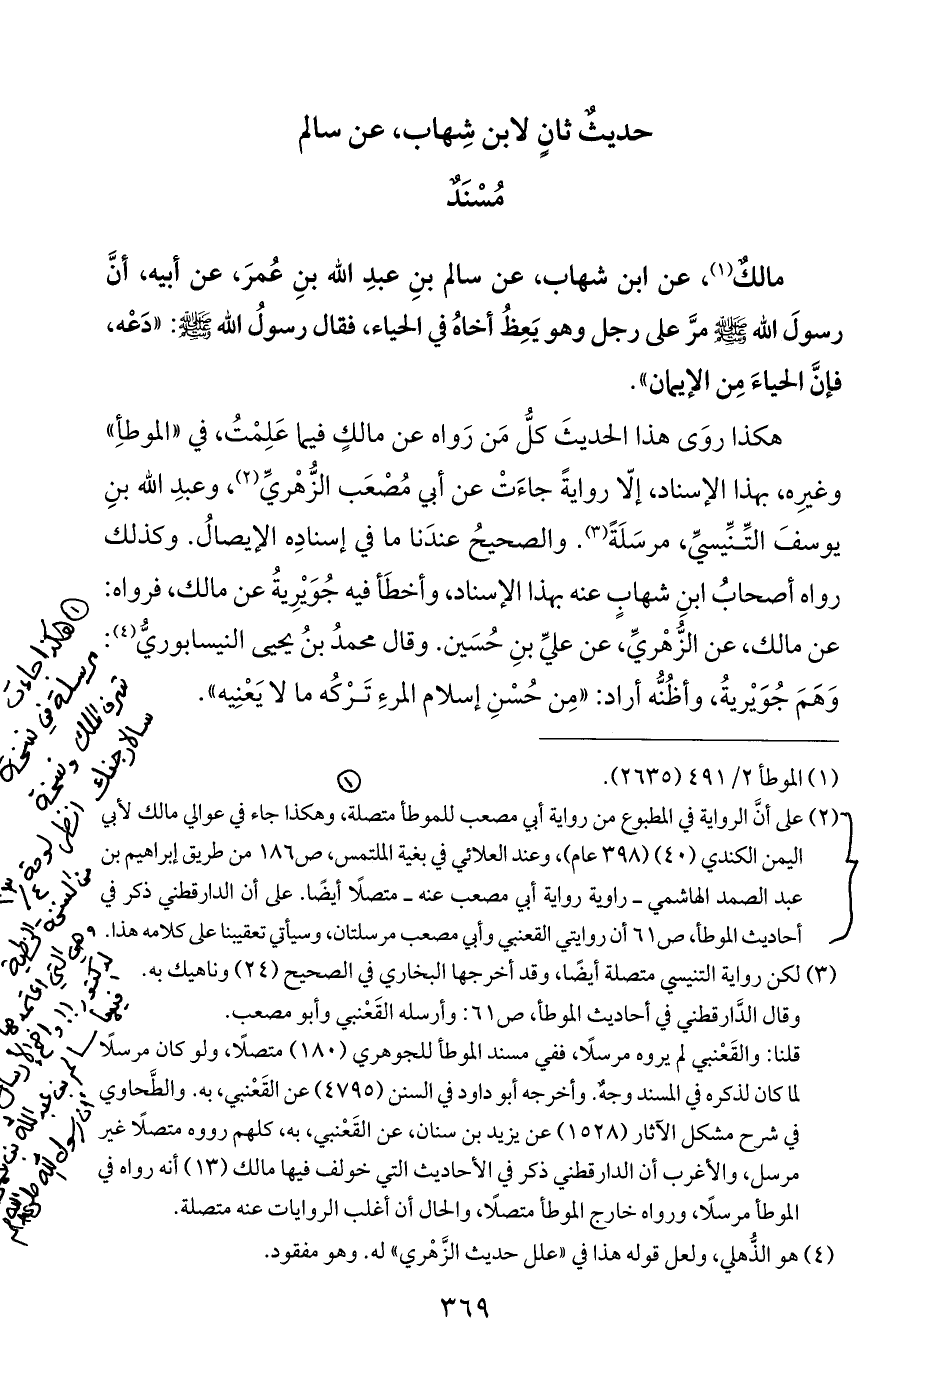 حديثٌ ثانٍ لابن شِهاب، عن سالم
مُسْنَدٌ
مالكٌ(١)، عن ابن شهاب، عن سالم بنِ عبدِ الله بنِ عُمرَ، عن أبيه، أنَّ
رسولَ الله ﷺ مرَّ على رجل وهو يَعِظُ أخاهُ في الحياء، فقال رسولُ الله ﷺ: «دَعْه،
فإنَّ الحياءَ مِن الإيمان».
هكذا روَى هذا الحديثَ كلُّ مَن رَواه عن مالكٍ فيما عَلِمْتُ، في «الموطأِ»
وغيرِه، بهذا الإسناد، إلّا روايةً جاءَتْ عن أبي مُصْعَب الزُّهْريِّ(٢)، وعبدِ الله بنِ
يوسفَ التِّنِّيسيِّ، مرسَلَةً(٣). والصحيحُ عندَنا ما في إسنادِه الإيصالُ. وكذلك
رواه أصحابُ ابنِ شهابٍ عنه بهذا الإسناد، وأخطَأ فيه جُوَيْريةُ عن مالك، فرواه:
عن مالك، عن الزُّهْريِّ، عن عليِّ بنِ حُسَين. وقال محمدُ بنُ يحيى النيسابوريُّ(٤):
وَهَمَ جُوَيْريةُ، وأظُنُّه أراد: «مِن حُسْنِ إسلام المرءِ تَرْكُه ما لا يَعْنِيه».
(١) الموطأ ٢/ ٤٩١ (٢٦٣٥).
(٢) على أنَّ الرواية في المطبوع من رواية أبي مصعب للموطأ متصلة، وهكذا جاء في عوالي مالك لأبي
اليمن الكندي (٤٠) (٣٩٨ عام)، وعند العلائي في بغية الملتمس، ص١٨٦ من طريق إبراهيم بن
عبد الصمد الهاشمي ـ راوية رواية أبي مصعب عنه ـ متصلًا أيضًا. على أن الدارقطني ذكر في
أحاديث الموطأ، ص٦١ أن روايتي القعنبي وأبي مصعب مرسلتان، وسيأتي تعقيبنا على كلامه هذا.
(٣) لكن رواية التنيسي متصلة أيضًا، وقد أخرجها البخاري في الصحيح (٢٤) وناهيك به.
وقال الدَّارقطني في أحاديث الموطأ، ص٦١: وأرسله القَعْنبي وأبو مصعب.
قلنا: والقَعْنبي لم يروه مرسلًا، ففي مسند الموطأ للجوهري (١٨٠) متصلًا، ولو كان مرسلًا
لما كان لذكره في المسند وجهٌ. وأخرجه أبو داود في السنن (٤٧٩٥) عن القَعْنبي، به. والطَّحاوي
في شرح مشكل الآثار (١٥٢٨) عن يزيد بن سنان، عن القَعْنبي، به، كلهم رووه متصلًا غير
مرسل، والأغرب أن الدارقطني ذكر في الأحاديث التي خولف فيها مالك (١٣) أنه رواه في
الموطأ مرسلًا، ورواه خارج الموطأ متصلًا، والحال أن أغلب الروايات عنه متصلة.
(٤) هو الذُّهلي، ولعل قوله هذا في «علل حديث الزَّهْري» له. وهو مفقود.
٣٦٩
١
١ هكذا جاءت
مرسلة في نسخة
شرف الملك ونسخة
سالارجنك انظر لوحة
من النسخة الخطية
وهي التي اعتمدها
الدكتور